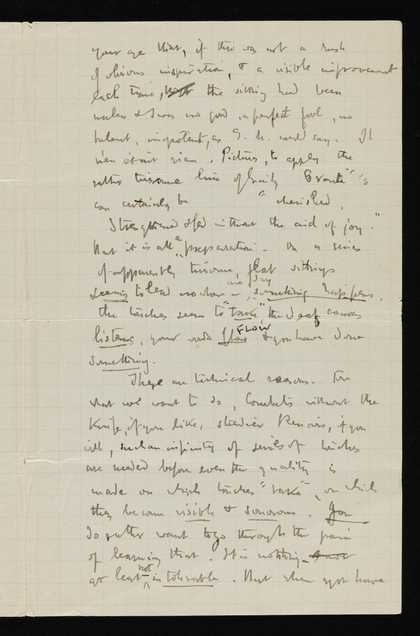 your age that, if there was not a rush
of obvious inspiration, & a visible improvement
each time, the sitting had been
useless & I was no good, a perfect fool, no
talent, impotent, as G. M. would say. It
isn't our view. Pictures, to apply the
rather tiresome line of Emily Brontë's
can certainly be "cherished,
Strengthened & fed without the aid of joy."
But it is all a "preparation. On a series
of apparently tiresome, flat sittings
seeming to lead nowhere – one day something happens,
the touches seem to "take", the deaf canvas
listens, your words flow FLOW & you have done
something.
These are technical reasons. For
what we want to do, Courbets without the
knife, if you like, steadier Renoirs, if you
will, such an infinity of series of touches
are needed before even the quality is
made on which touches "take", on which
they become visible & sonorous. You
do rather want to go through the pain
of learning that. It is nothing
at least not intolerable. But when you have